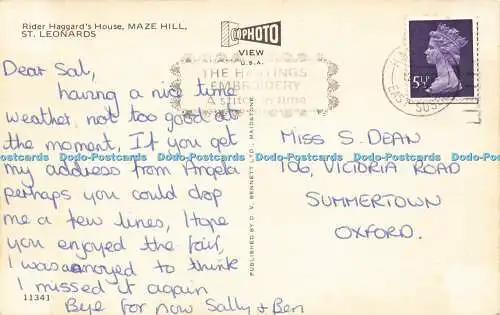 Rider Haggard's House, MAZE HILL,
ST. LEONARDS
PHOTO
VIEW
U.S.A.
THE HASTINGS
EMBROIDERY
A stitch in time
5½P
Dear Sal,
having a nice time
weather, not too good at
the moment, If you get
my address from Angela
perhaps you could drop
me a few lines, I hope
you enjoyed the fair,
I was annoyed to think
I missed it again
Bye for now Sally + Ben
11341
PUBLISHED BY D. V. BENNETT LTD., MAIDSTONE
MISS S. DEAN
106, VICTORIA ROAD
SUMMERTOWN
OXFORD.
Dodo-Postcards Dodo-Postcards Dodo-Postcards Dodo-Postcards Dodo-Postcards